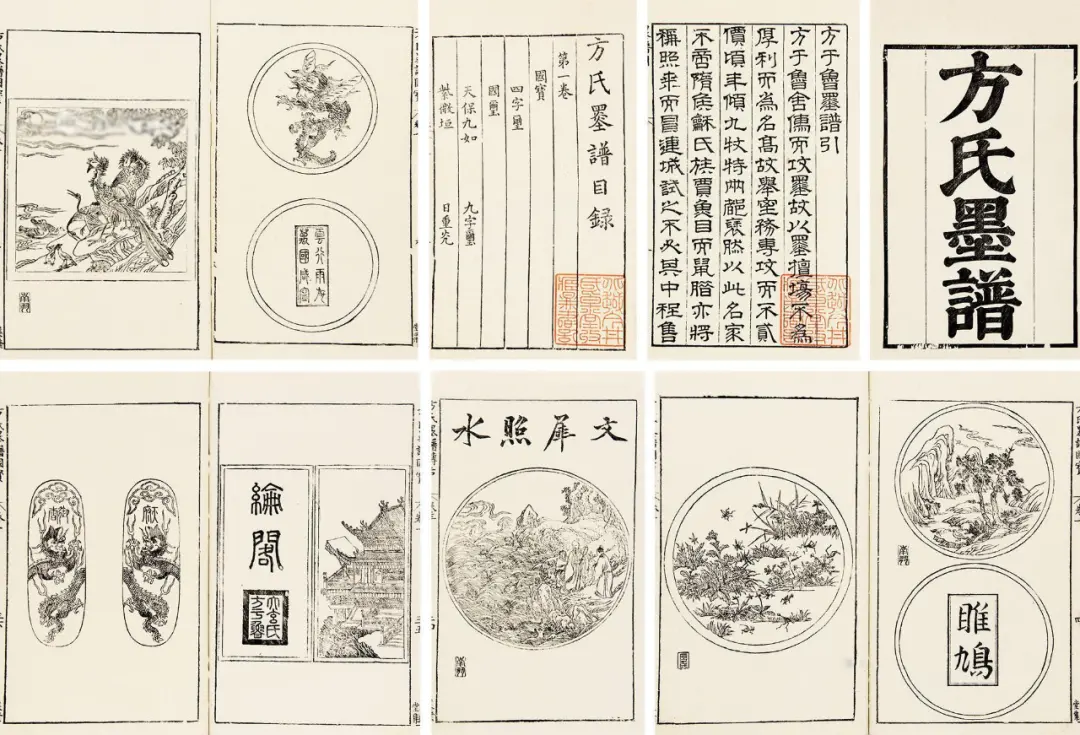 方氏墨譜
方于魯墨譜引
方于魯舍儒而攻墨故以墨擅場不為
厚利而為名高故舉室務專攻而不貳
價頃年傾九牧特以此名家
不啻隋矦穌氏族賈魚目而鼠腊亦將
稱照乘而冒連城試之不必其中程售
方氏墨譜目錄
第一卷
國寶
四字璽
國璽
天保九如 九字璽
紫微垣 日重光
雲行雨施
萬國咸寧
雎鳩
文犀照水
綸閣